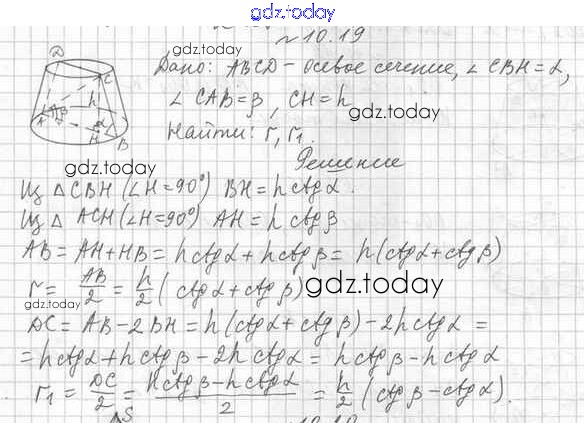 gdz.today
№ 10.19
gdz.today
Дано: ABCD - осевое сечение, ∠ CBH = α,
∠ CAB = β, CH = h
Найти: r, r₁.
gdz.today
Решение
Из △ CBH (∠H = 90°) BH = h ctg α.
Из △ ACH (∠H = 90°) AH = h ctg β
AB = AH + HB = h ctg α + h ctg β = h (ctg α + ctg β)
r = AB/2 = h/2 (ctg α + ctg β)
gdz.today
gdz.today
DC = AB - 2BH = h (ctg α + ctg β) - 2h ctg α =
= h ctg α + h ctg β - 2h ctg α = h ctg β - h ctg α
r₁ = DC/2 = (h ctg β - h ctg α)/2 = h/2 (ctg β - ctg α).
D
C
h
A
β
α
H
B
S